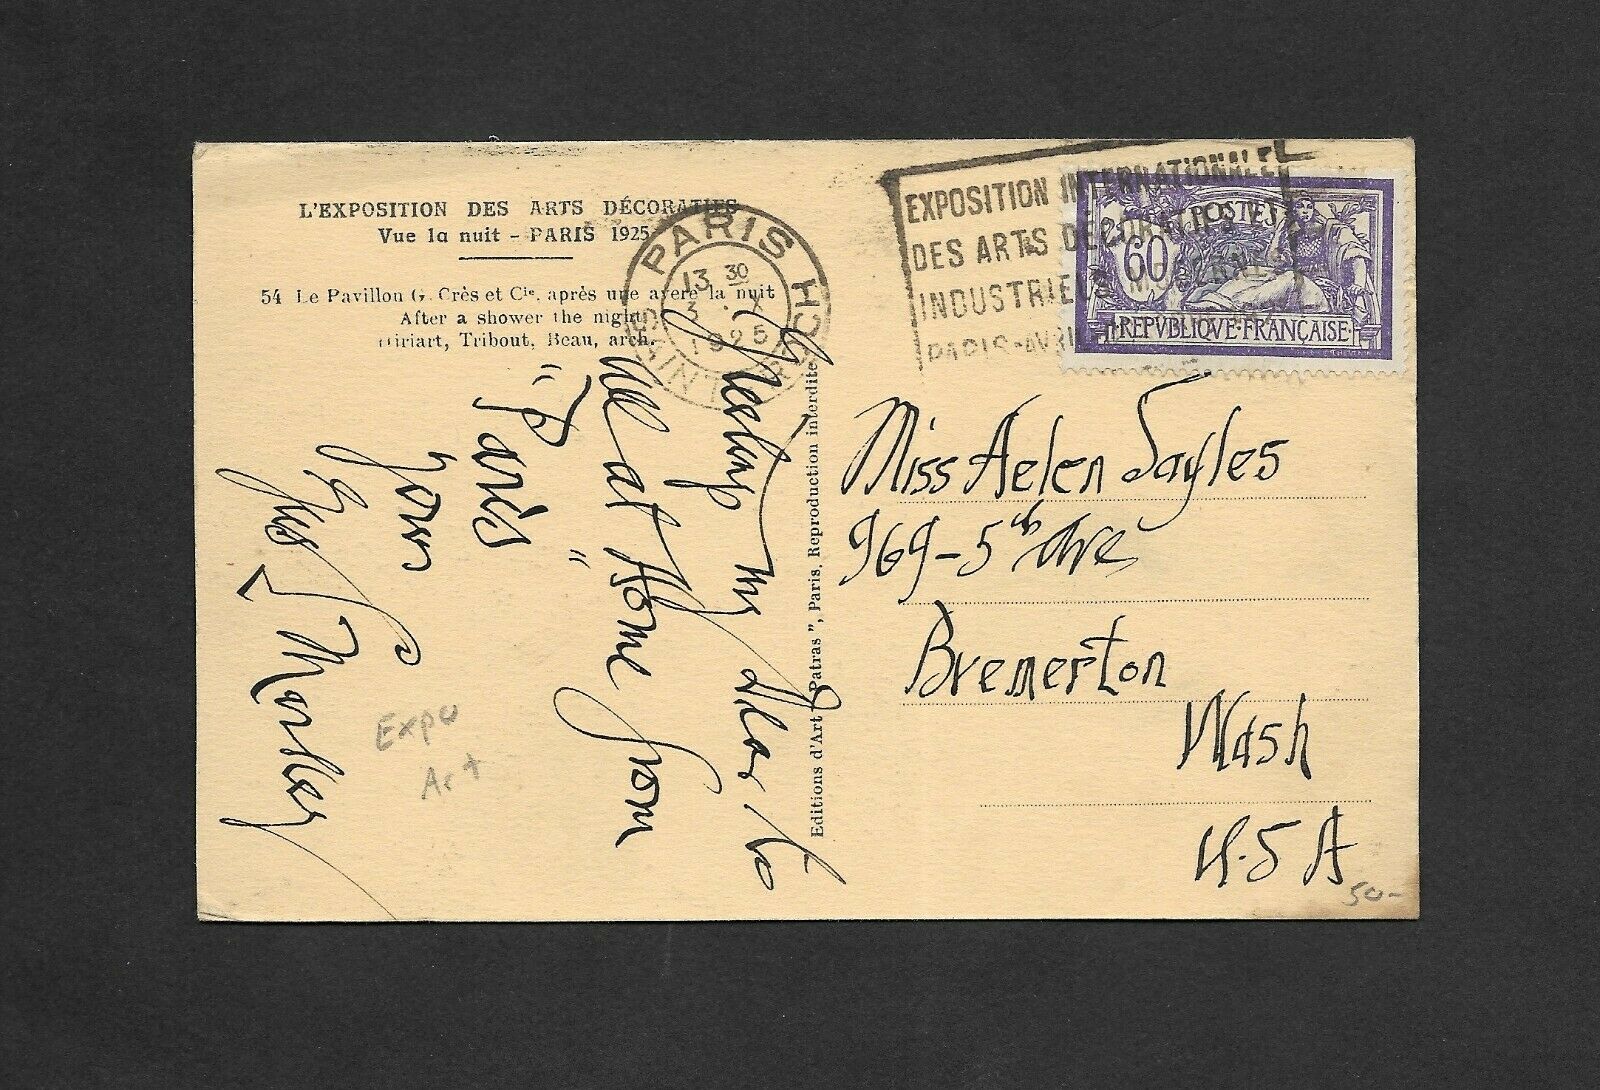 L'EXPOSITION DES ARTS DÉCORATIFS
Vue la nuit - PARIS 1925
54 Le Pavillon G. Crès et Cie, après une avere la nuit
After a shower the night
Hiriart, Tribout, Beau, arch.
PARIS
13 30
3
1925
EXPOSITION INTERNATIONALE
DES ARTS DÉCORATIFS
INDUSTRIELS MODERNES
PARIS-AVRIL
POSTES
60
REPVBLIQVE·FRANÇAISE
Greeting my dear to
all at Home from
"Paris"
Your
Morlley
Editions d'Art "Patras", Paris, Reproduction interdite
Miss Helen Sayles
969-5th Ave
Bremerton
Wash
U.S A
Expo
Art
50-